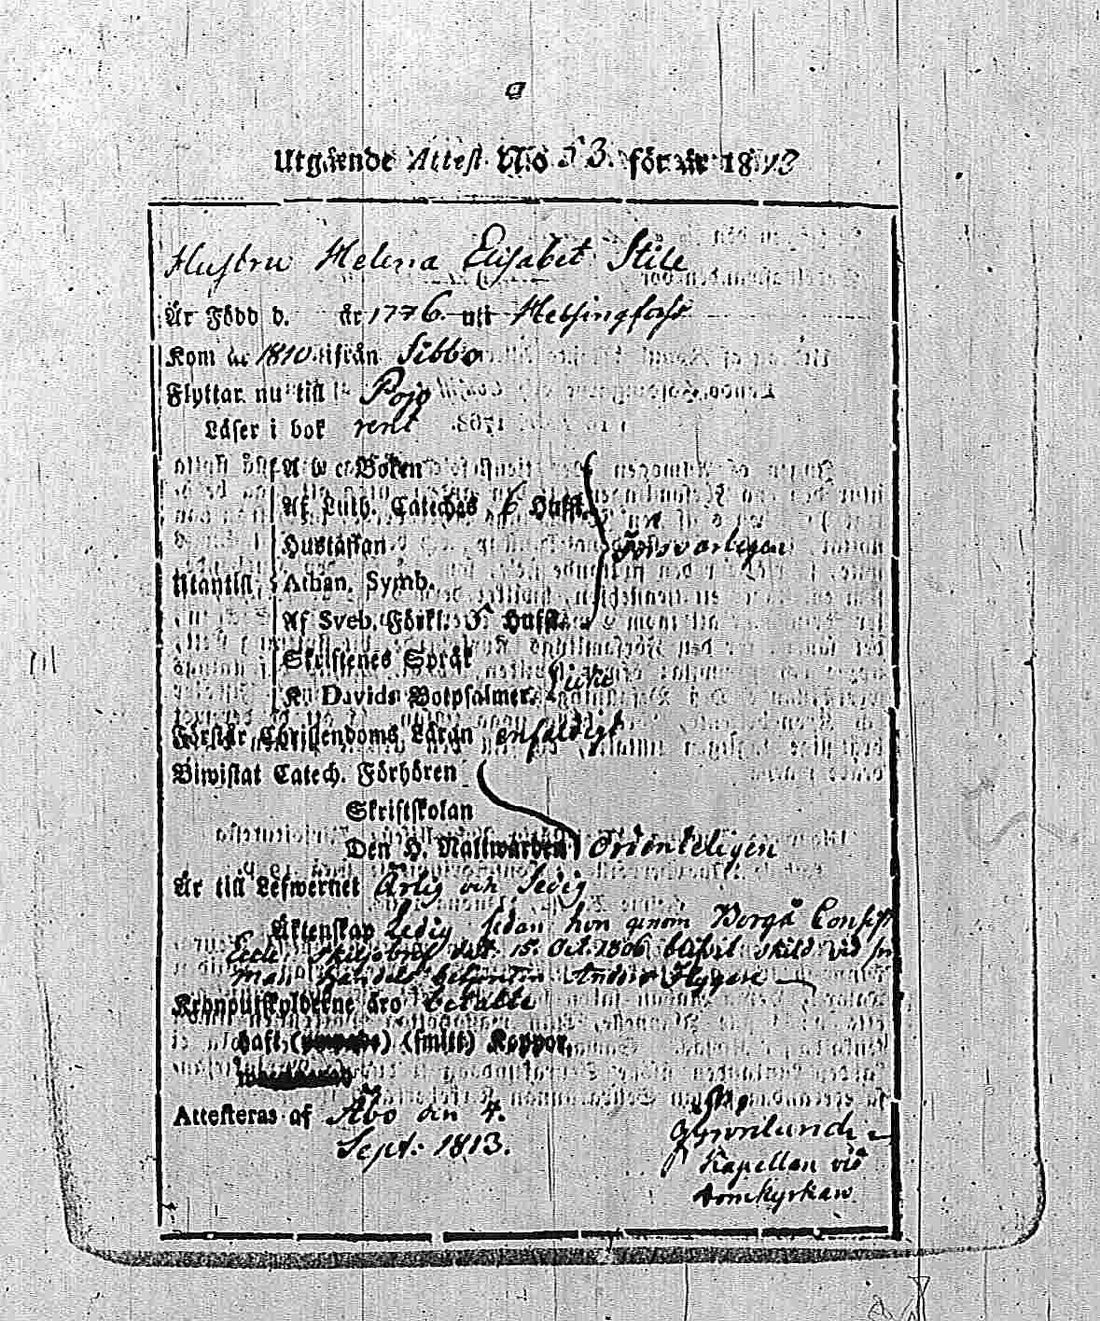 a
Utgående Attest No 53. för år 1813
Hustru Helena Elisabet Stile
Är Född d. år 1776. uti Helsingfors
Kom år 1810 ifrån Sibbo
Flyttar nu till Pojo
Läser i bok rent
A b c Boken
Af Luth. Cateches 6 Hufst.
Hustaflan Försvarligen
Utantill Athan. Symb.
Af Sveb. Förkl. 5 Hufst.
Skriftenes Språk
K. Davids Botpsalmer.
Förstår Christendoms Läran enfaldigt
Biwistat Catech. Förhören
Skriftskolan
Den H. Nattwarden Ordenteligen
Är till Lefwernet Ärlig och Sedig
Äktenskap Ledig sedan hon genom Borgå Consist.
Eccl. Skiljobref dat. 15. Oct. 1806 blifvit skild vid sin
man Handels Betjenten Anders Flygare
Kronoutskylderne äro betalte
haft (smitt) Koppor,
Attesteras af Åbo den 4.
Sept. 1813.
Kapellan vid
Domkyrkan